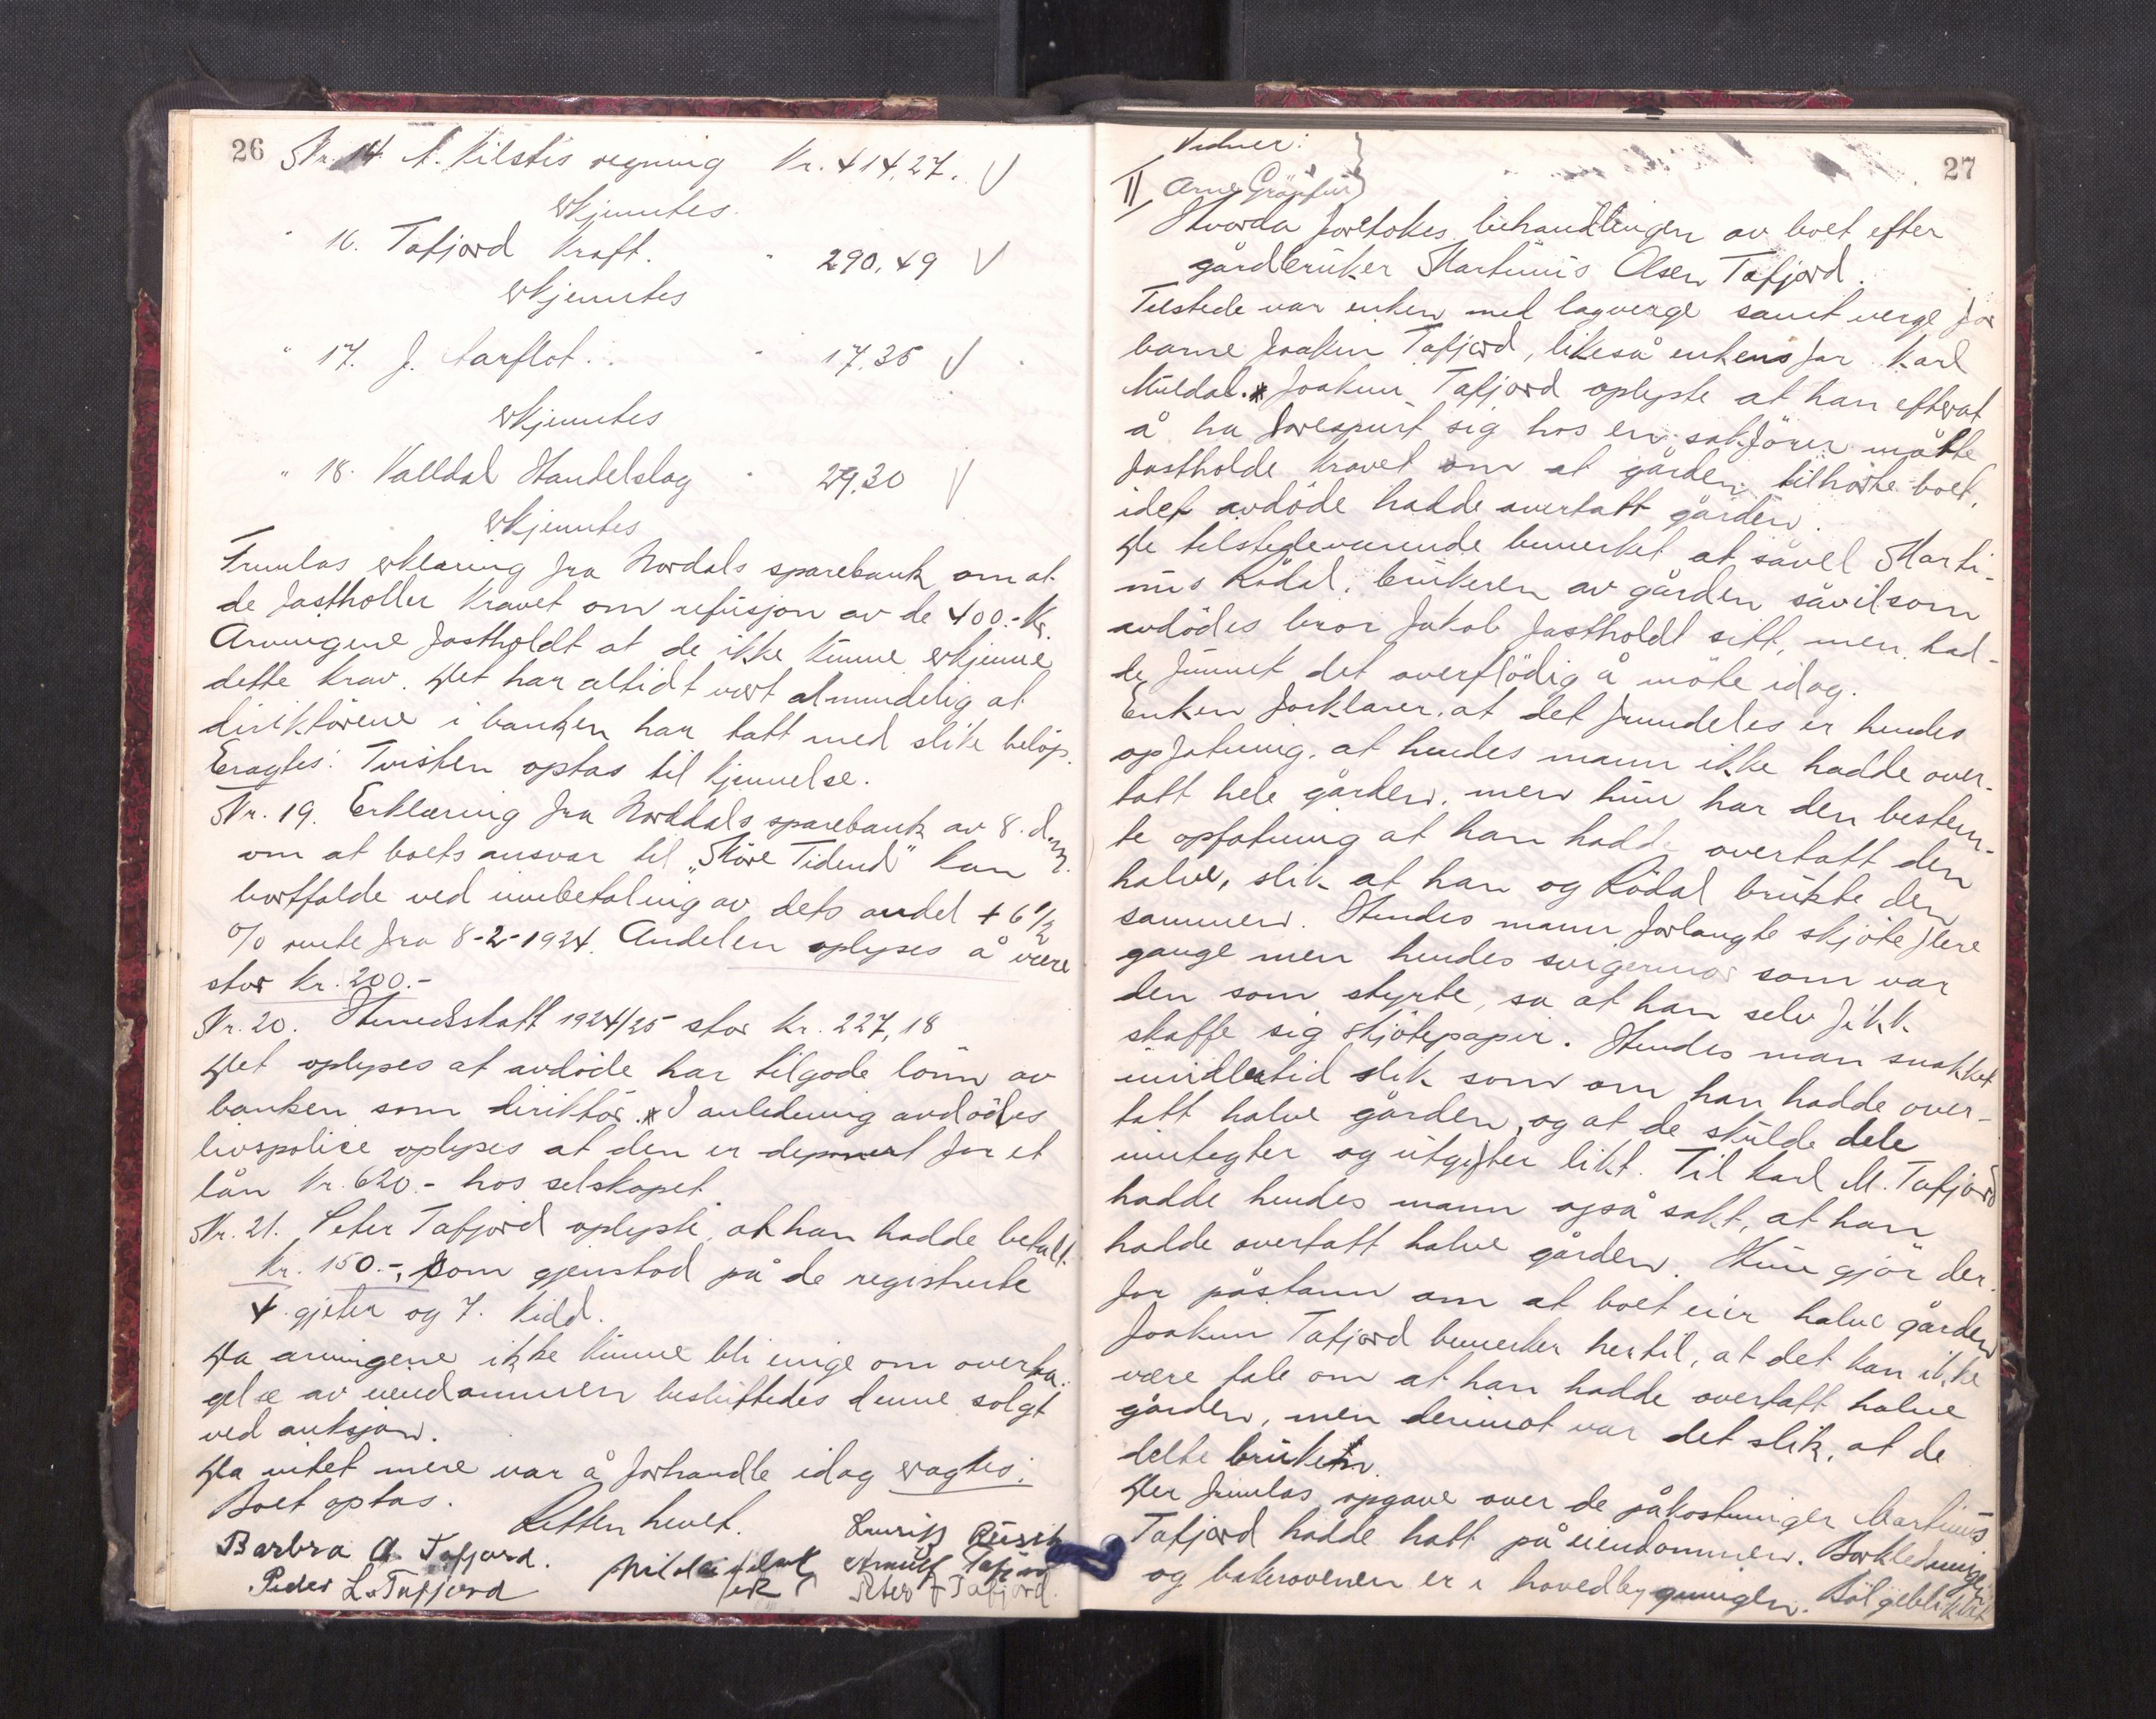 26
Nr. 14. A. Kilstis regning Kr. 414,27. V
erkjentes.
" 16. Tafjord Kraft. " 290,49 V
erkjentes
" 17. J. Aarflot. " 17,35 V
erkjentes
" 18. Valldal Handelslag " 29,30 V
erkjentes
Fremlas erklæring fra Nordals sparebank om at
de fastholder kravet om refusjon av de 400.- kr.
Arvingene fastholdt at de ikke kunne erkjenne
dette krav. Det har altidt vært almindelig at
direktørene i banken har tatt med slike beløp.
Eragtes: Tvisten optas til kjennelse.
Nr. 19. Erklæring fra Norddals sparebank av 8. d.m.
om at boets ansvar til "Møre Tidend" kan
bortfalde ved innbetaling av dets andel + 6 1/2
% rente fra 8-2-1924. Andelen oplyses å være
stor kr. 200.-
Nr. 20. Herredsskatt 1924/25 stor kr. 227,18
Det oplyses at avdøde har tilgode lønn av
banken som direktør. * I anledning avdødes
livspolice oplyses at den er deponert for et
lån kr. 620.- hos selskapet.
Nr. 21. Peter Tafjord oplyste, at han hadde betalt
kr. 150.-, som gjenstod på de registrerte
4 gjeter og 7. kidd.
Da arvingene ikke kunne bli enige om overta-
gelse av eiendommen besluttedes denne solgt
ved auksjon.
Da intet mere var å forhandle idag eragtes:
Boet optas.
Retten hevet.
Barbra A Tafjord.
Peder L. Tafjord
Arnulf Tafjord
Peter Tafjord.
27
Vidner:
II Arne
Hvorda foretokes behandlingen av boet efter
gårdbruker Martinus Olsen Tafjord.
Tilstede var enken med lagverge samt verge for
barne Joakim Tafjord, likeså enkens far Karl
Muldal. * Joakim Tafjord oplyste at han efterat
å ha forespurt sig hos en sakfører måtte
fastholde kravet om at gården tilhørte boet,
idet avdøde hadde overtatt gården.
De tilstedeværende bemerket at såvel Marti-
nus Rødal, brukeren av gården såvelsom
avdødes bror Jakob fastholdt sitt, men had-
de funnet det overflødig å møte idag.
Enken forklarer, at det fremdeles er hendes
opfatning, at hendes mann ikke hadde over-
tatt hele gården, men hun har den bestem-
te opfatning at han hadde overtatt den
halve, slik at han og Rødal brukte den
sammen. Hendes mann forlangte skjøte flere
gange men hendes svigermor som var
den som styrte, sa at han selv fikk
skaffe sig skjøtepapir. Hendes man snakket
imidlertid slik som om han hadde over-
tatt halve gården, og at de skulde dele
inntegter og utgifter likt. Til Karl M. Tafjord
hadde hendes mann også sakt, at han
hadde overtatt halve gården. Hun gjør der-
for påstann om at boet eier halve gården
Joakim Tafjord bemerker hertil, at det kan ikke
være tale om at han hadde overtatt halve
gården, men derimot var det slik, at de
delte bruken.
Der fremlas opgave over de påkostninger Martinus
Tafjord hadde hatt på eiendommen.
og bakerovenen er i hovedbygningen.